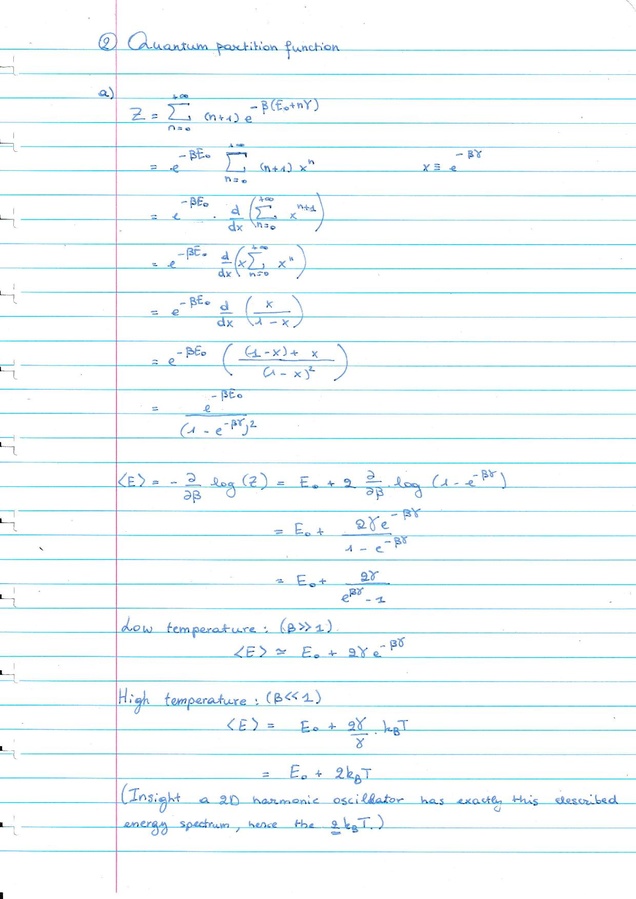 ② Quantum partition function
a)
Z = ∑_{n=0}^{+∞} (n+1) e^{-β(E₀+nγ)}
= e^{-βE₀} ∑_{n=0}^{+∞} (n+1) xⁿ x ≡ e^{-βγ}
= e^{-βE₀} · d/dx (∑_{n=0}^{+∞} x^{n+1})
= e^{-βE₀} d/dx (x ∑_{n=0}^{+∞} xⁿ)
= e^{-βE₀} d/dx (x/(1-x))
= e^{-βE₀} (((1-x)+x)/(1-x)²)
= e^{-βE₀}/(1-e^{-βγ})²
⟨E⟩ = -∂/∂β log(Z) = E₀ + 2 ∂/∂β log(1-e^{-βγ})
= E₀ + 2γe^{-βγ}/(1-e^{-βγ})
= E₀ + 2γ/(e^{βγ}-1)
Low temperature: (β>>1)
⟨E⟩ ≃ E₀ + 2γe^{-βγ}
High temperature: (β<<1)
⟨E⟩ = E₀ + 2γ/γ · k_BT
= E₀ + 2k_BT
(Insight a 2D harmonic oscillator has exactly this described
energy spectrum, hence the 2k_BT.)